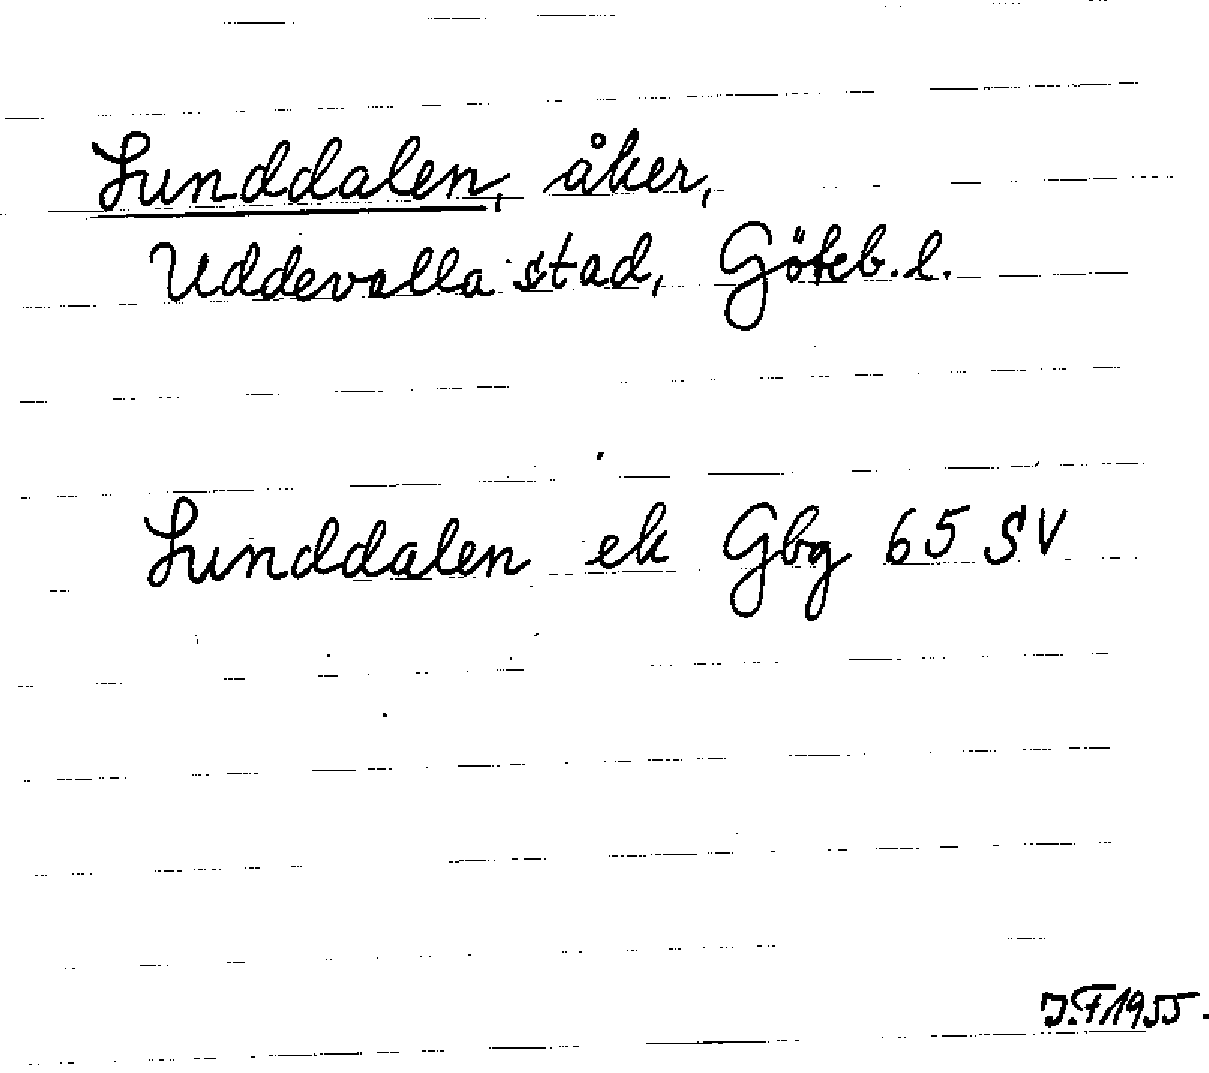 Lunddalen, åker,
Uddevalla stad, Göteb.l.
Lunddalen ek Gbg 65 SV
I.F 1955.